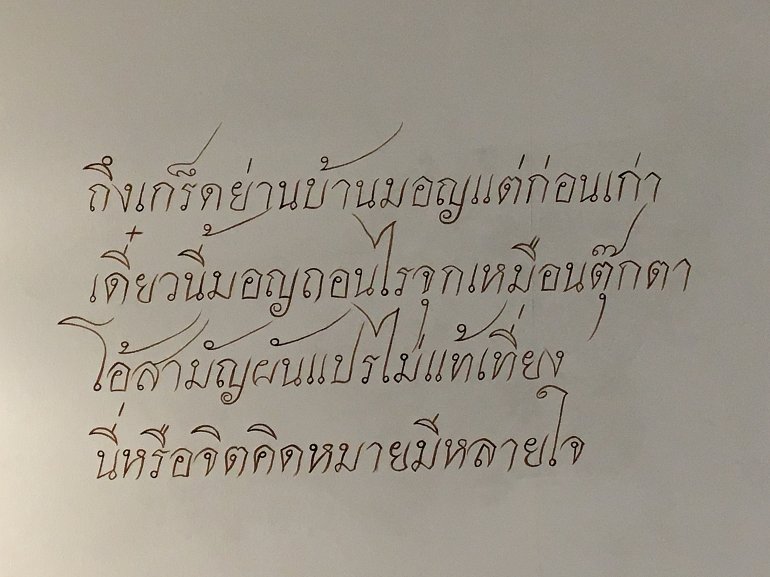 ถึงเกร็ดย่านบ้านมอญแต่ก่อนเก่า
เดี๋ยวนี้มอญถอนไรจุกเหมือนตุ๊กตา
โอ้สามัญผันแปรไม่แท้เที่ยง
นี่หรือจิตคิดหมายมีหลายใจ